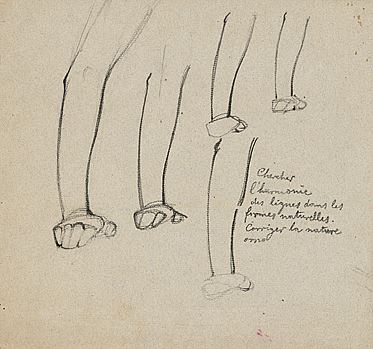 Chercher
l'harmonie
des lignes dans les
formes naturelles.
Corriger la nature